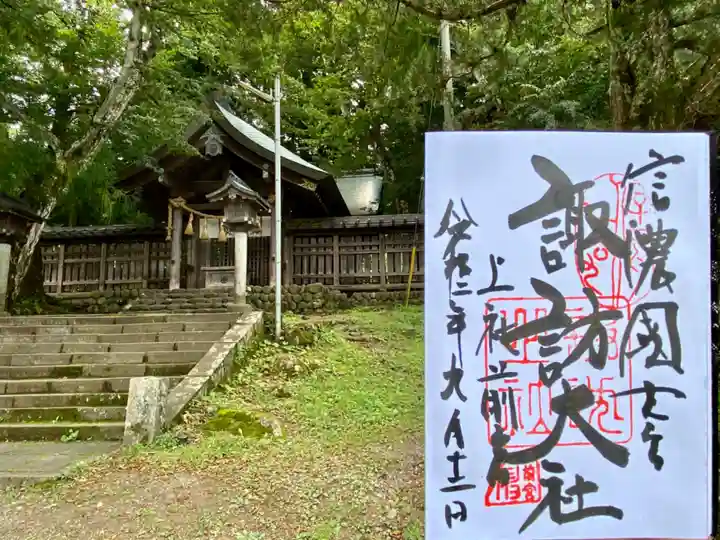 信濃國一之宮
諏訪大社
上社前宮
令和二年九月十二日